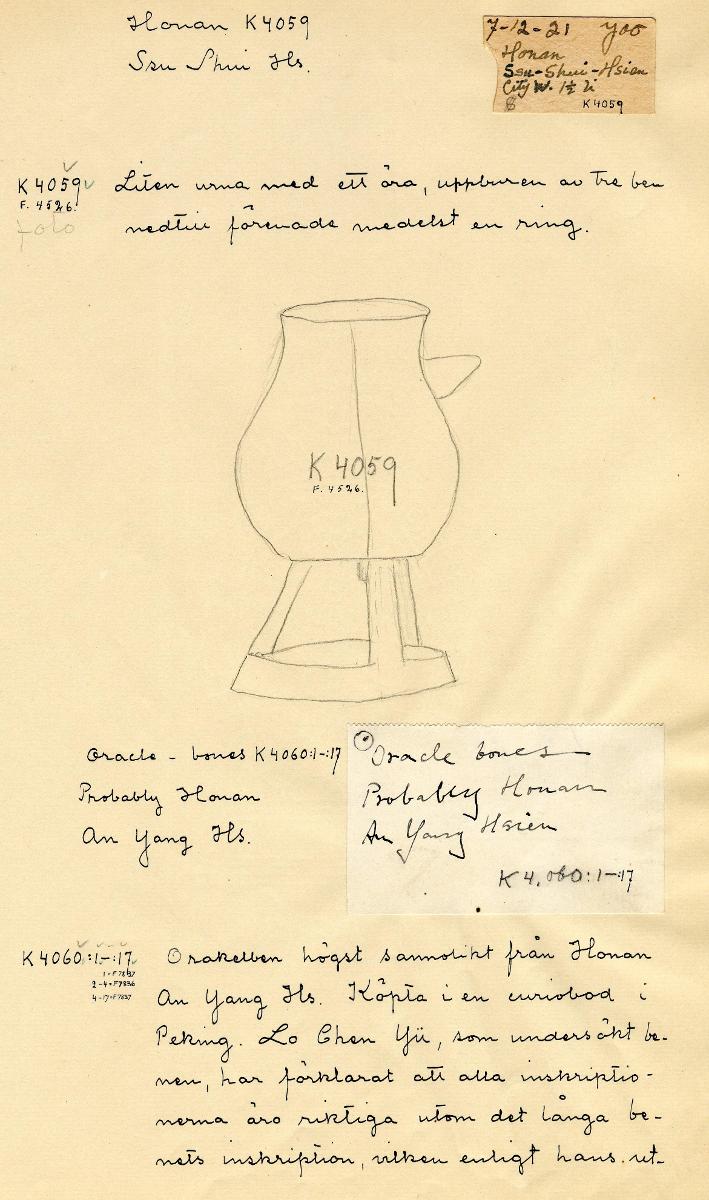 Honan K4059
Ssu Shui Hs.
7-12-21 Yao
Honan
Ssu-Shui-Hsien
City W. 1½ li
8
K4059
K4059
F. 4526.
Foto
Liten urna med ett öra, uppburen av tre ben
nedtill förenade medelst en ring.
K 4059
F. 4526.
Oracle - bones K4060:1-:17
Probably Honan
An Yang Hs.
Oracle bones
Probably Honan
An Yang Hsien
K4.060:1-:17
K4060:1-:17
1=F7837
2-4=F7836
4-17=F7837
Orakelben högst sannolikt från Honan
An Yang Hs. Köpta i en curiobod i
Peking. Lo Chen Yü, som undersökt be-
nen, har förklarat att alla inskriptio-
nerna äro riktiga utom det långa be-
nets inskription, vilken enligt hans ut-